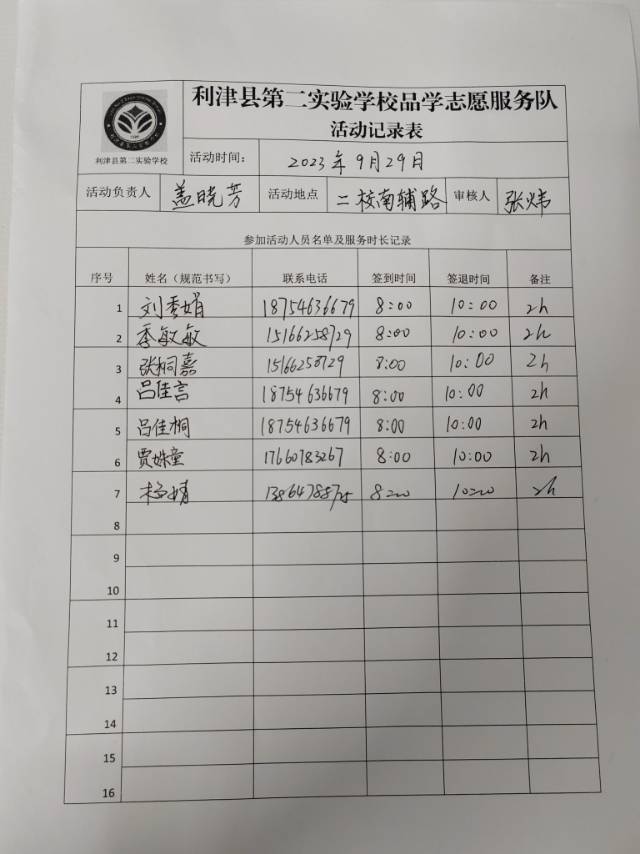 利津县第二实验学校品学志愿服务队
活动记录表
利津县第二实验学校
活动时间： 2023年9月29日
活动负责人 盖晓芳 活动地点 二校南辅路 审核人 张炜
参加活动人员名单及服务时长记录
序号 姓名（规范书写） 联系电话 签到时间 签退时间 备注
1 刘秀娟 18754636679 8:00 10:00 2h
2 季敏敏 15166258729 8:00 10:00 2h
3 张桐嘉 15166258729 8:00 10:00 2h
4 吕佳言 18754636679 8:00 10:00 2h
5 吕佳桐 18754636679 8:00 10:00 2h
6 贾姝童 17660783267 8:00 10:00 2h
7 杨婧 8:00 10:00 2h
8
9
10
11
12
13
14
15
16